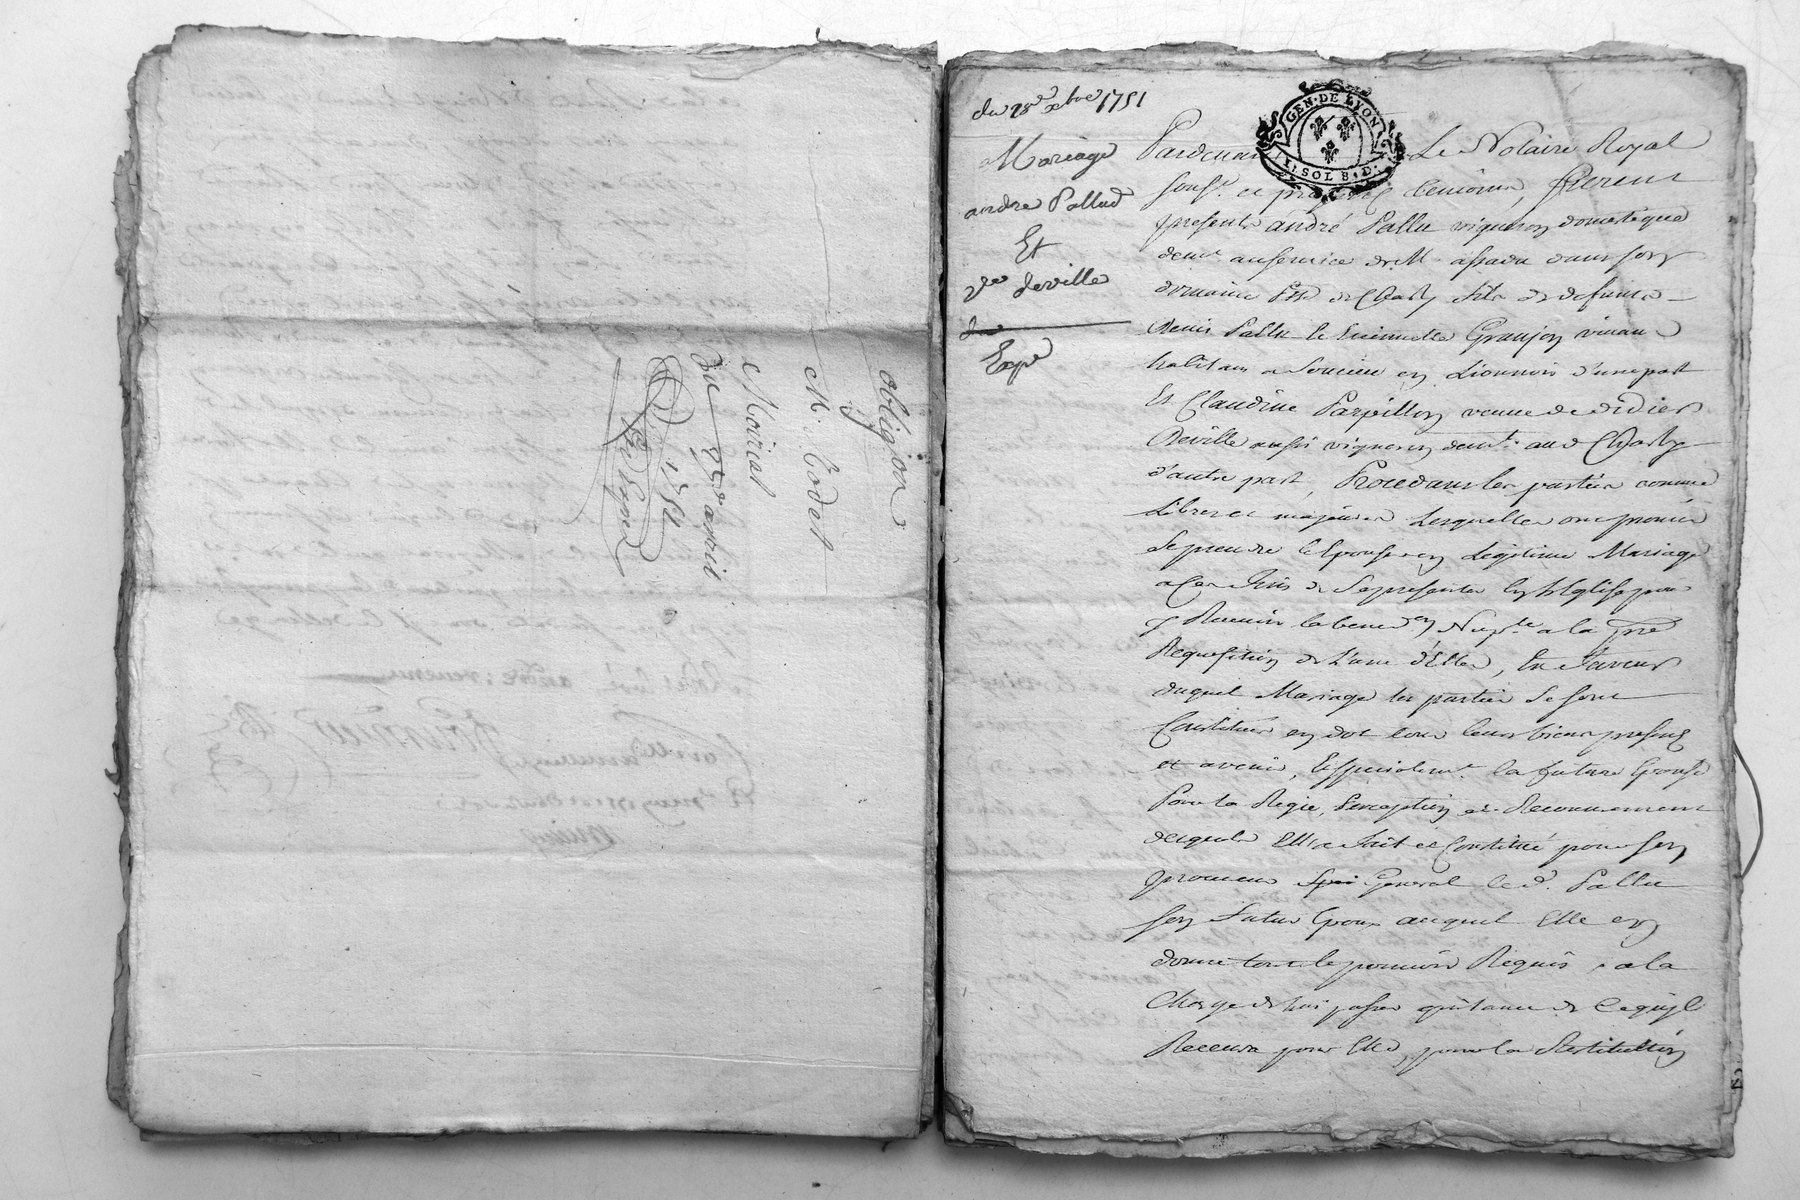 obligõn
M. Codet
Moiriat
Du 25e avril
1751
du 28e xbre 1751
Mariage
andre Pallud
Et
Ve deville
Expé
GEN. DE LYON
1. SOL 8. D.
Pardevant Le Notaire Royal
souse. et temoins, furent
presents andré Pallu vigneron domestique
demt. au service de M. assada dans son
domaine Psse de Charly fils de defunts
Denis Pallu et Enemonde Granjon vivans
habitans a Soucieu en Lionnois d'une part
Et Claudine Parpillon veuve de didier
Deville aussi vigneron demt. aud Charly
d'autre part, Procedans les parties comme
Libres et majeures Lesquelles ont promis
se prendre et Epouser en Legitime Mariage
a ces fins de se presenter En Eglise pour
y Recevoir la bened.on Nup.le a la pre
Requisition de L'une d'Elles, En faveur
duquel Mariage les parties se sont
Constitués en dot tous leurs biens presens
et avenir, Et specialemt. la future Epouse
Pour la Regie, Perception et Recouvrement
desquels Elle a fait et Constitué pour son
procureur General le d. Pallu
son futur Epoux auquel Elle en
donne tout le pouvoir Requis, a la
Charge de luy passer quitance de Ce qu'il
Recevra pour Elle, pour la Restitution